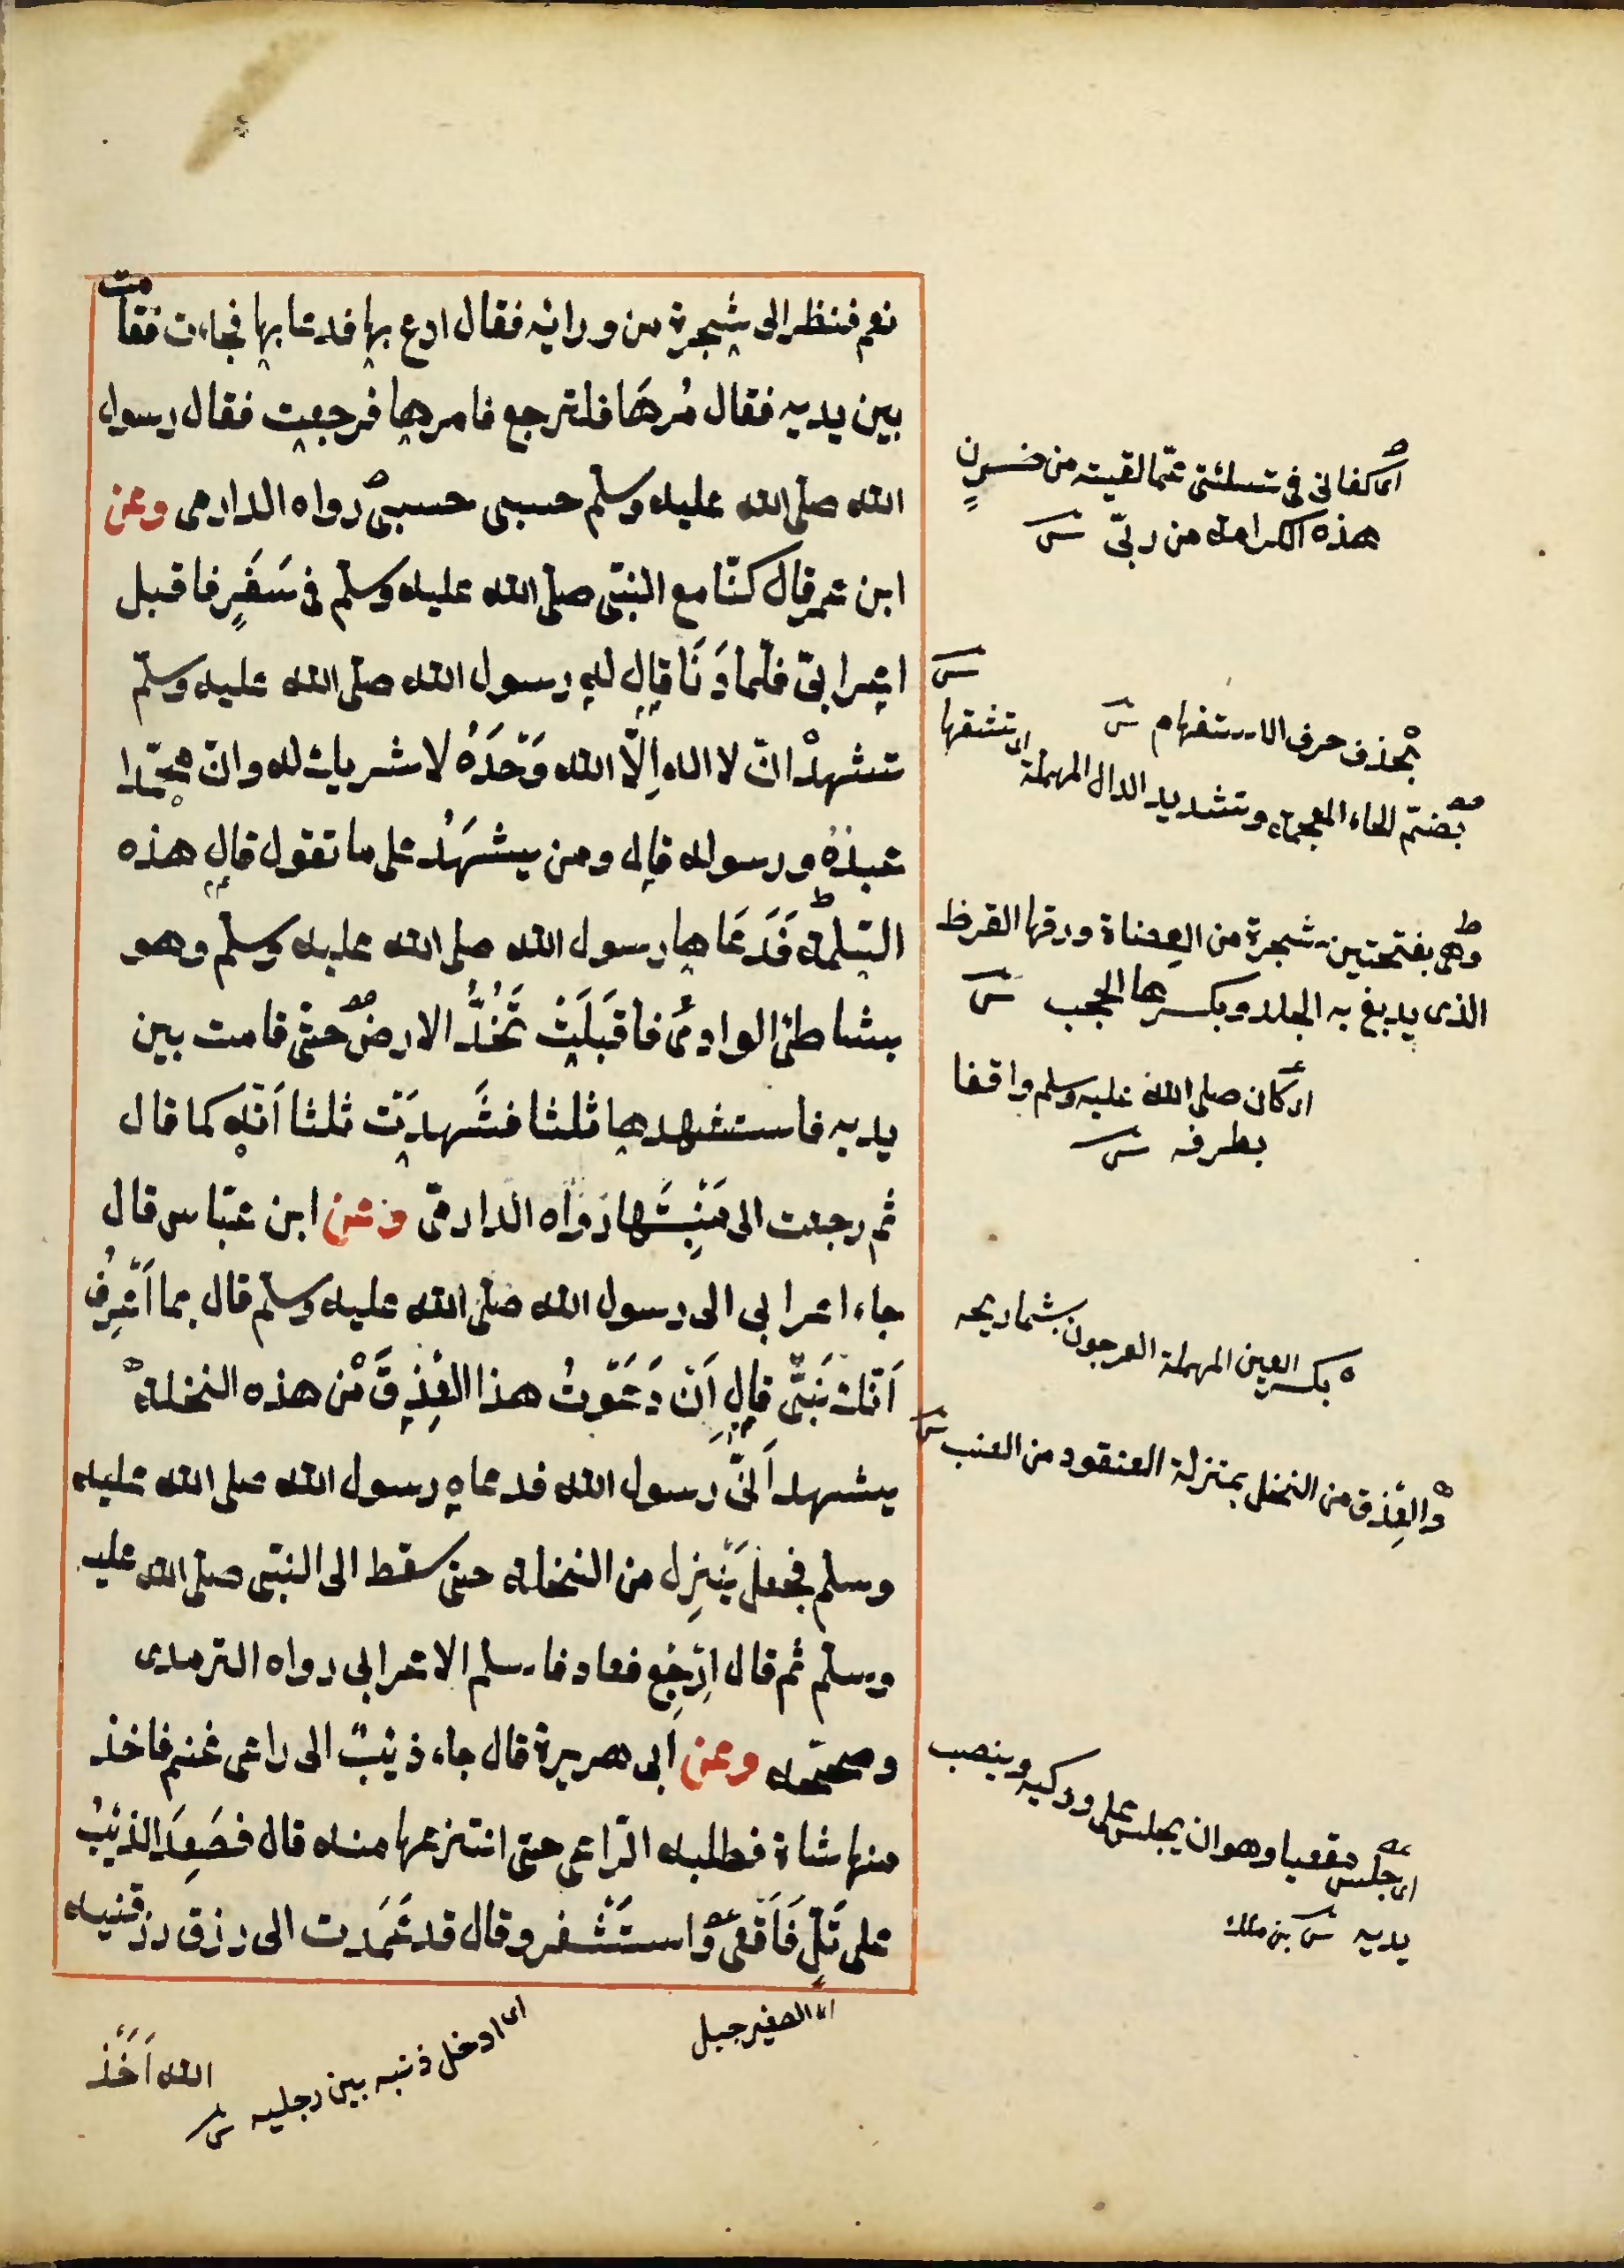 نعم فنظر الى شجرة من ورائه فقال ادع بها فدعا بها فجاءت فقامت
بين يديه فقال مُرهَا فلترجع فامرها فرجعت فقال رسول
الله صلى الله عليه وسلم حسبى حسبى رواه الدارمى وعن
ابن عمر قال كنّا مع النبّى صلى الله عليه وسلم فى سَفَرٍ فاقبل
اعرابىّ فلما دَنَا قال له رسول الله صلى الله عليه وسلم
تشهدْ انّ لا اله اِلّا الله وَحَدَهُ لا شريك له وانّ محمّدا
عبدُهُ ورسوله قال ومن يشهَدُ على ما تقول قال هذه
السّلمة فَدَعَاها رسول الله صلى الله عليه وسلم وهو
بشاطئ الوادى فاقبَلَتْ تَخُدُّ الارض حتى قامت بين
يديه فاستشهدها ثلثا فشَهدَتْ ثلثا اَنّه كما قال
ثم رجعت الى مَنْبِتَها رَواه الدارمىّ وعن ابن عبّاس قال
جاء اعرابى الى رسول الله صلى الله عليه وسلم قال بما اَعْرِفُ
اَنّك نَبىّ قال اَنْ دَعَوتُ هذا العِذِقَ مْن هذه النخلة
يشهد اَنىّ رسول الله فدعاه رسول الله صلى الله عليه
وسلم فجعل يَنْزِل من النخلة حتى سقط الى النبّى صلى الله عليه
وسلم ثم قال اِرْجِعْ فعاد فاسلم الاعرابى رواه الترمدى
وصححّه وعن اَبى هريرة قال جاء ذئبٌ الى راعى غنم فاخذ
منها شاة فطلبه الرّاعى حتى انتزعها منه قال فصَعِدَ الذئبُ
على تَلٍّ فَاَقْعى واستَثْفر وقال قد عَمَدت الى رزق رزقنيه
الله اَخَذْ
اى كفانى فى تسلئتى عمّا لقيته من
هذه الكرامة من ربّى ش
بحذف حرف الاستفهام ش
بضمّ الخاء المعجمة وتشديد الدال المهملة اى تشقها ش
وهى بفتحتين شجرة من العضاة ورقها القرظ
الذى يدبغ به الجلد وبكسرها الحجب ش
اى كان صلى الله عليه وسلم واقفا
بطرفه ش
بكسر العين المهملة العرجون بشماريخه
والعِذق من النخل بمنزلة العنقود من العنب ش
اى جلس مقعيا وهو ان يجلس على وركيه وينصب
يديه ش بن ملك
الصغير جبل
اى ادخل ذنبه بين رجليه ش